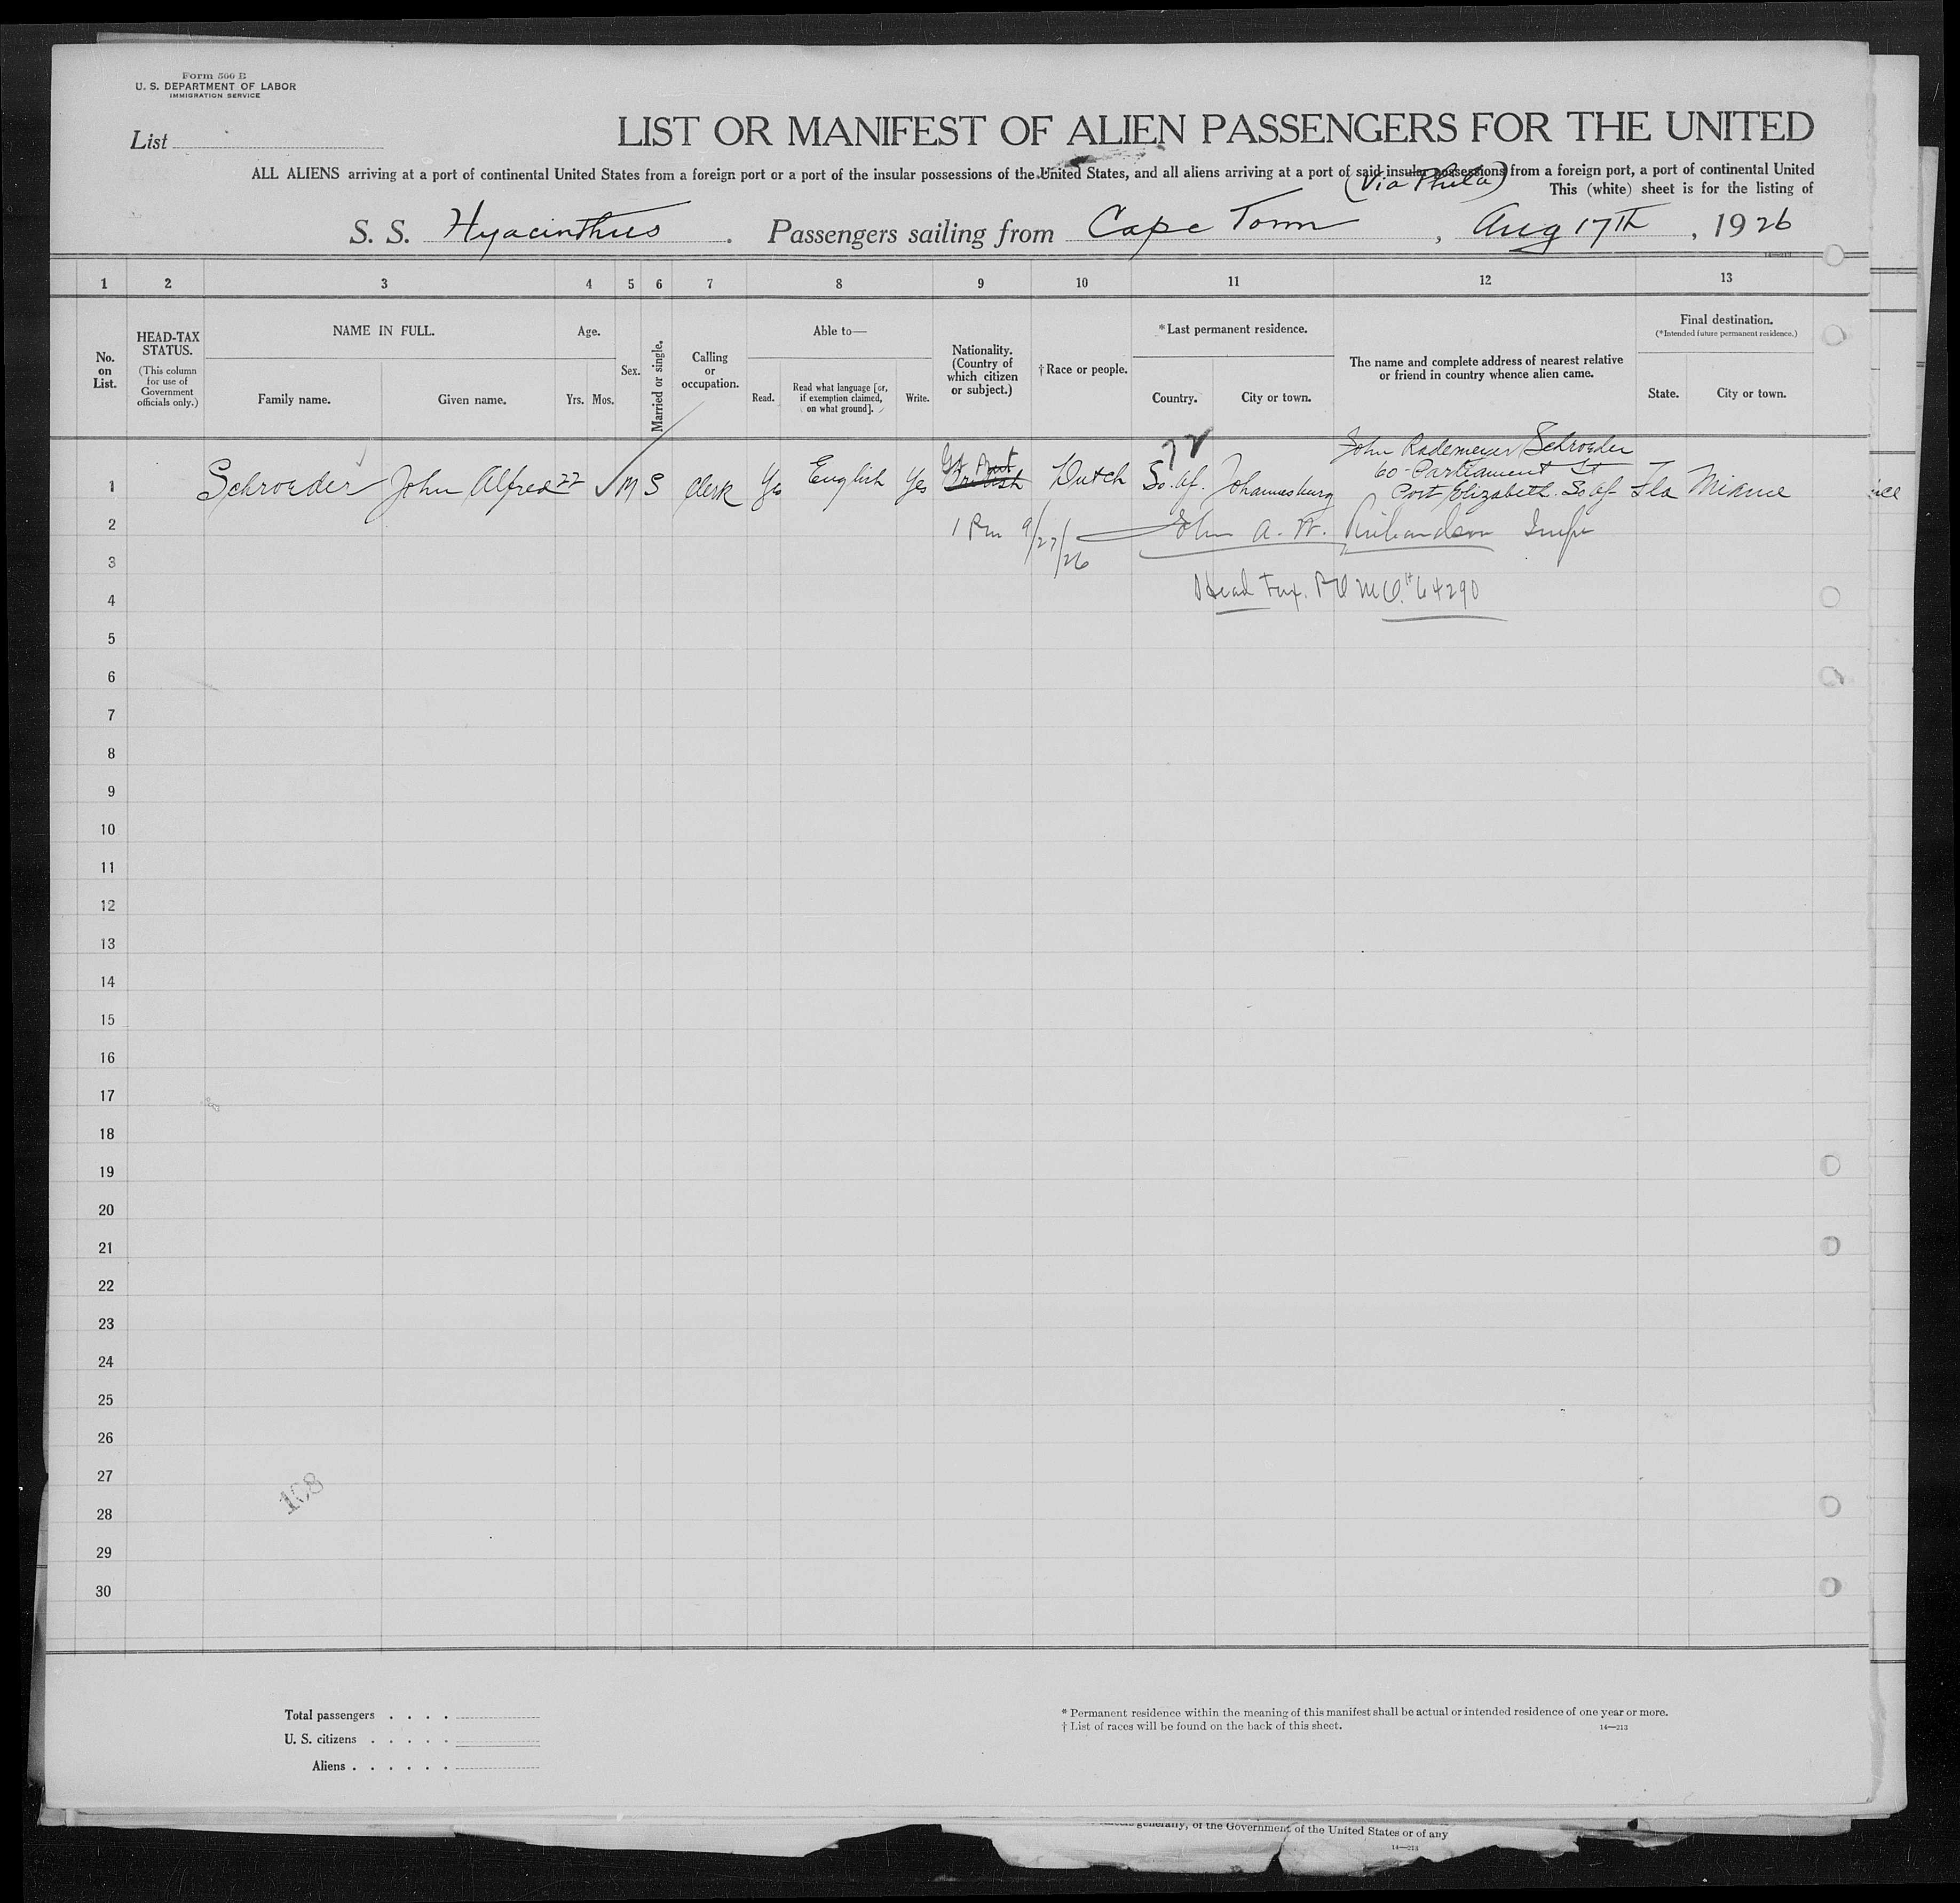 Form 500 B
U. S. DEPARTMENT OF LABOR
IMMIGRATION SERVICE
List
LIST OR MANIFEST OF ALIEN PASSENGERS FOR THE UNITED
ALL ALIENS arriving at a port of continental United States from a foreign port or a port of the insular possessions of the United States, and all aliens arriving at a port of said insular possessions from a foreign port, a port of continental United
(Via Phila)
This (white) sheet is for the listing of
S. S. Hyacinthus . Passengers sailing from Cape Town , Aug 17th , 1926
14—213
1 2 3 4 5 6 7 8 9 10 11 12 13
No. on List.
HEAD-TAX STATUS.
(This column for use of Government officials only.)
NAME IN FULL.
Family name.
Given name.
Age.
Yrs. Mos.
Sex.
Married or single.
Calling or occupation.
Able to—
Read.
Read what language [or, if exemption claimed, on what ground].
Write.
Nationality. (Country of which citizen or subject.)
† Race or people.
*Last permanent residence.
Country.
City or town.
The name and complete address of nearest relative or friend in country whence alien came.
Final destination.
(*Intended future permanent residence.)
State.
City or town.
John Rademeyer Schroeder
60 - Parliament St
Port Elizabeth. So Af
1 Schroeder John Alfred 22 M S Clerk Yes English Yes British Dutch So. Af. Johannesburg Fla Miami
2 1 Pm 9/27/26 John A. W. Richardson Insp
3
4 Head Tax. #64290
5
6
7
8
9
10
11
12
13
14
15
16
17
18
19
20
21
22
23
24
25
26
27
108
28
29
30
Total passengers . . . .
U. S. citizens . . . . .
Aliens . . . . . .
* Permanent residence within the meaning of this manifest shall be actual or intended residence of one year or more.
† List of races will be found on the back of this sheet.
14—213
generally, of the Government of the United States or of any
14—213